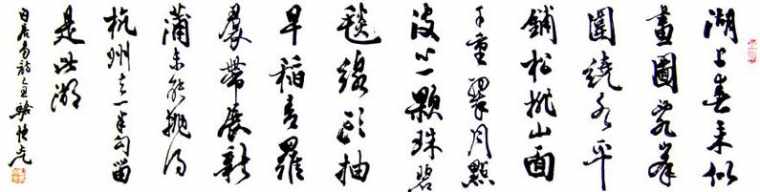 湖上春來似
畫圖亂峯
圍繞水平
鋪松排山面
千重翠月點
波心一顆珠碧
毯線頭抽
早稻青羅
裙帶展新
蒲未能拋得
杭州去一半勾留
是此湖
白居易詩 駱恒光